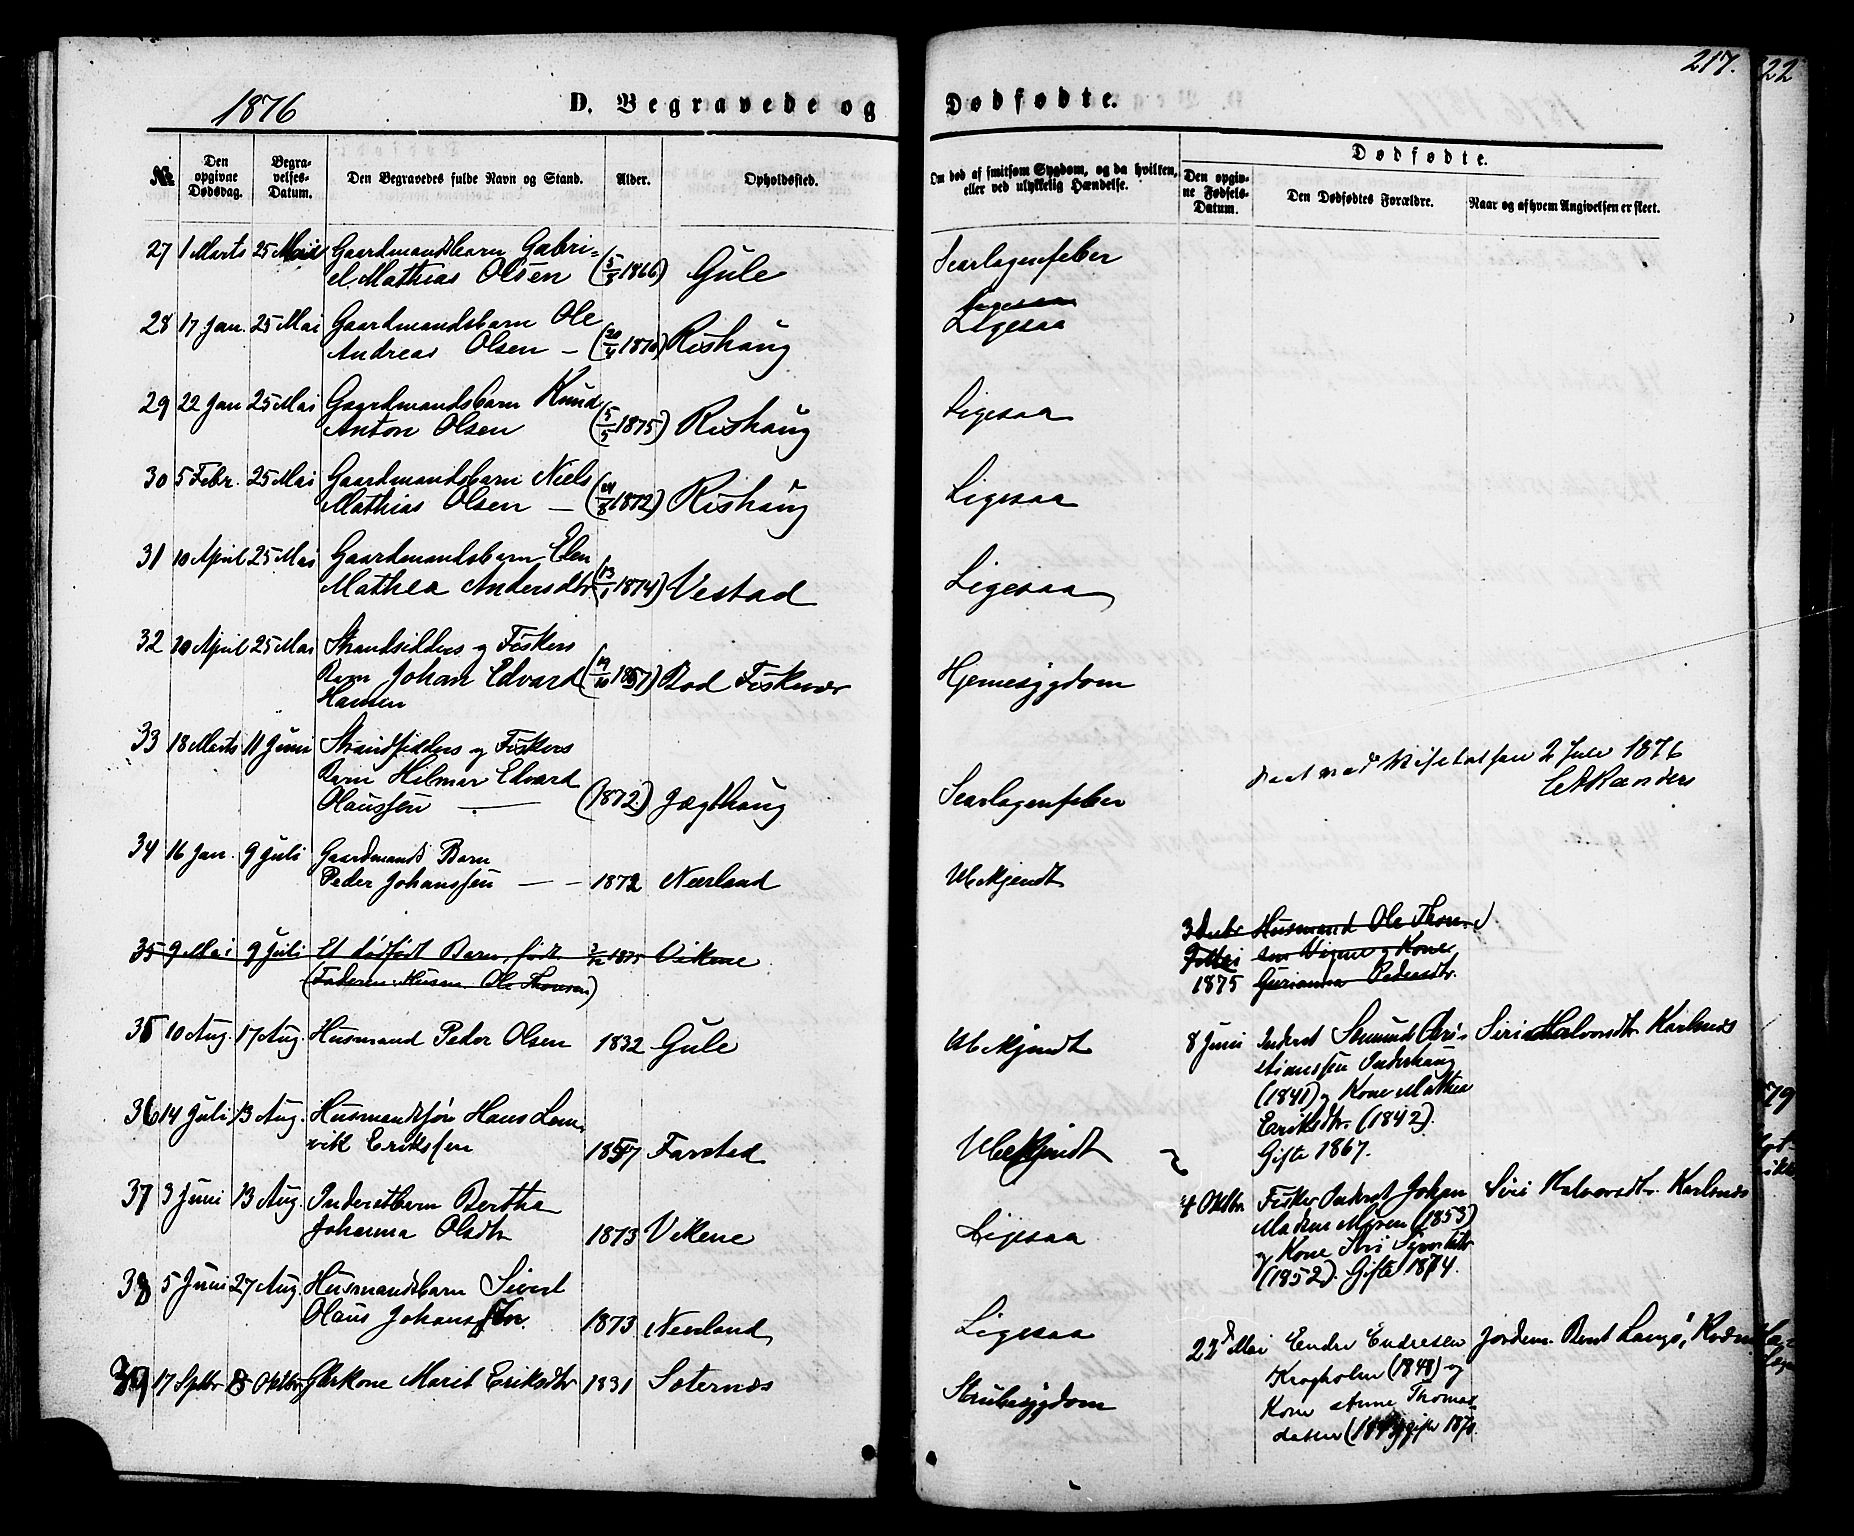 1876
D. Begravede og Dødfødte.
217.
22
№
Den opgivne Dødsdag.
Begravelses-Datum.
Den Begravedes fulde Navn og Stand.
Alder.
Opholdssted.
Om død af smitsom Sygdom, og da hvilken, eller ved ulykkelig Hændelse.
Dødfødte.
Den opgivne Fødsels-Datum.
Den Dødfødtes Forældre.
Naar og af hvem Angivelsen er skeet.
27 1 Marts 25 Mai Gaardmandsbarn Gabri-
el Mathias Olsen (5/8 1866) Gule Scarlagensfeber
Ligesaa
28 17 Jan. 25 Mai Gaardmandsbarn Ole
Andreas Olsen - (20/4 1870) Rishaug Ligesaa
29 22 Jan 25 Mai Gaardmandsbarn Knud
Anton Olsen (5/5 1875) Rishaug Ligesaa
30 5 Febr. 25 Mai Gaardmandsbarn Niels
Mathias Olsen - 1872) Rishaug Ligesaa
31 10 April 25 Mai Gaardmandsbarn Elen
Mathea Andersdtr. (13/1 1874) Vestad Ligesaa
32 20 April 25 Mai Strandsidders og Fiskers
Barn Johan Edvard (19/10 1857) Bod Fiskevær Hjernesygdom
Hansen
33 18 Marts 11 Juni Strandsidders og Fiskers
Barn Hilmar Edvard
Olaussen - (1872.) Jægthaug Scarlagensfeber
2 Juli 1876
34 16 Jan. 9 Juli Gaardmands Barn
Peder Johanssen - - 1872 Nerland Ubekjendt
35 9 Mai 9 Juli Et dødfødt Barn, født 1875 Vikene
(Faderen: Husm. Ole Thonsen)
Husmand Ole Thon-
sen Vigene og Kone
1875 Gurianna Pedersdtr.
35 10 Aug. 17 Aug. Husmand Peder Olsen 1832 Gule Ubekjendt
8 Juni Inderst Semund Chri-
stianssen Inderhaug
(1841) og Kone Mathea
Eriksdtr. (1842).
Gifte 1867.
Siri Halvorsdtr. Karlsnes
36 14 Juli 13 Aug. Husmandssøn Hans Lem-
vik Erikssen 1857 Farstad Ubekjendt
37 3 Juni 13 Aug. Inderstbarn Bertha
Johanna Olsdtr 1873 Vikene Ligesaa
4 Oktbr Fisker Inderst Johan
Madsen Myren (1853)
og Kone Siri Sivertsdtr
(1852). Gifte 1874.
Siri Halvorsdtr. Karlsnes
38 5 Juni 27 Aug. Husmandsbarn Sivert
Olaus Johanssen. 1873 Nerland Ligesaa
39 17 Sptbr 8 Oktbr Marit Eriksdtr 1831 Soternæs Strubesygdom
22 Mai Endre Endresen
Kragholm (1848) og
Kone Anne Thomas-
datter gifte 1870.
Jordem. Berit Langø,